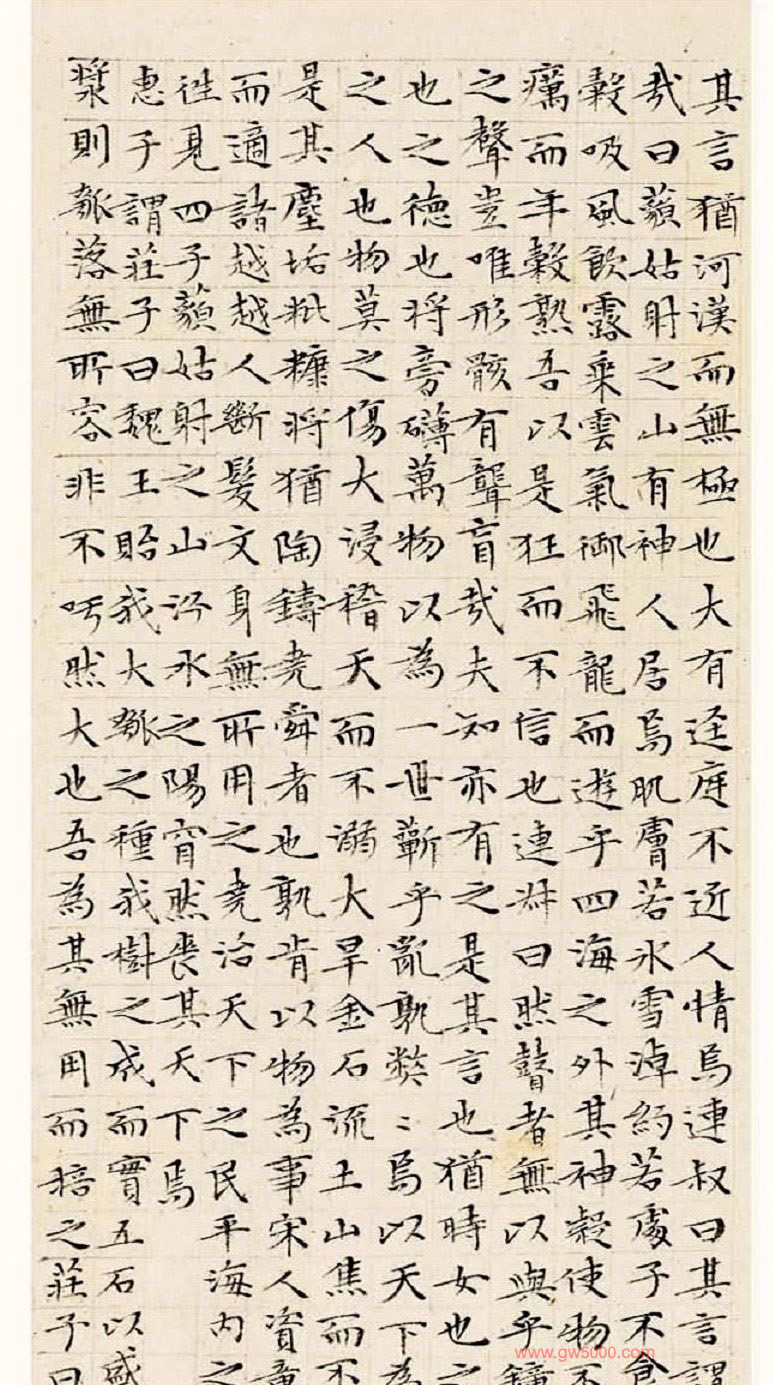 其言猶河漢而無極也大有逕庭不近人情焉連叔曰其言謂
哉曰藐姑射之山有神人居焉肌膚若氷雪淖約若處子不食
穀吸風飲露乗雲氣御飛龍而遊乎四海之外其神凝使物不
癘而年穀熟吾以是狂而不信也連叔曰然瞽者無以與乎鐘
之聲豈唯形骸有聾盲哉夫知亦有之是其言也猶時女也之
也之德也將旁礴萬物以為一世蘄乎亂孰弊〻焉以天下為
之人也物莫之傷大浸稽天而不溺大旱金石流土山焦而不
是其塵垢粃糠將猶陶鑄堯舜者也孰肯以物為事宋人資章
而適諸越越人斷髮文身無所用之堯治天下之民平海内之
徃見四子藐姑射之山汾水之陽窅然喪其天下焉
惠子謂莊子曰魏王貽我大瓠之種我樹之成而實五石以盛
漿則瓠落無所容非不呺然大也吾為其無用而掊之莊子曰
www.gw5000.com